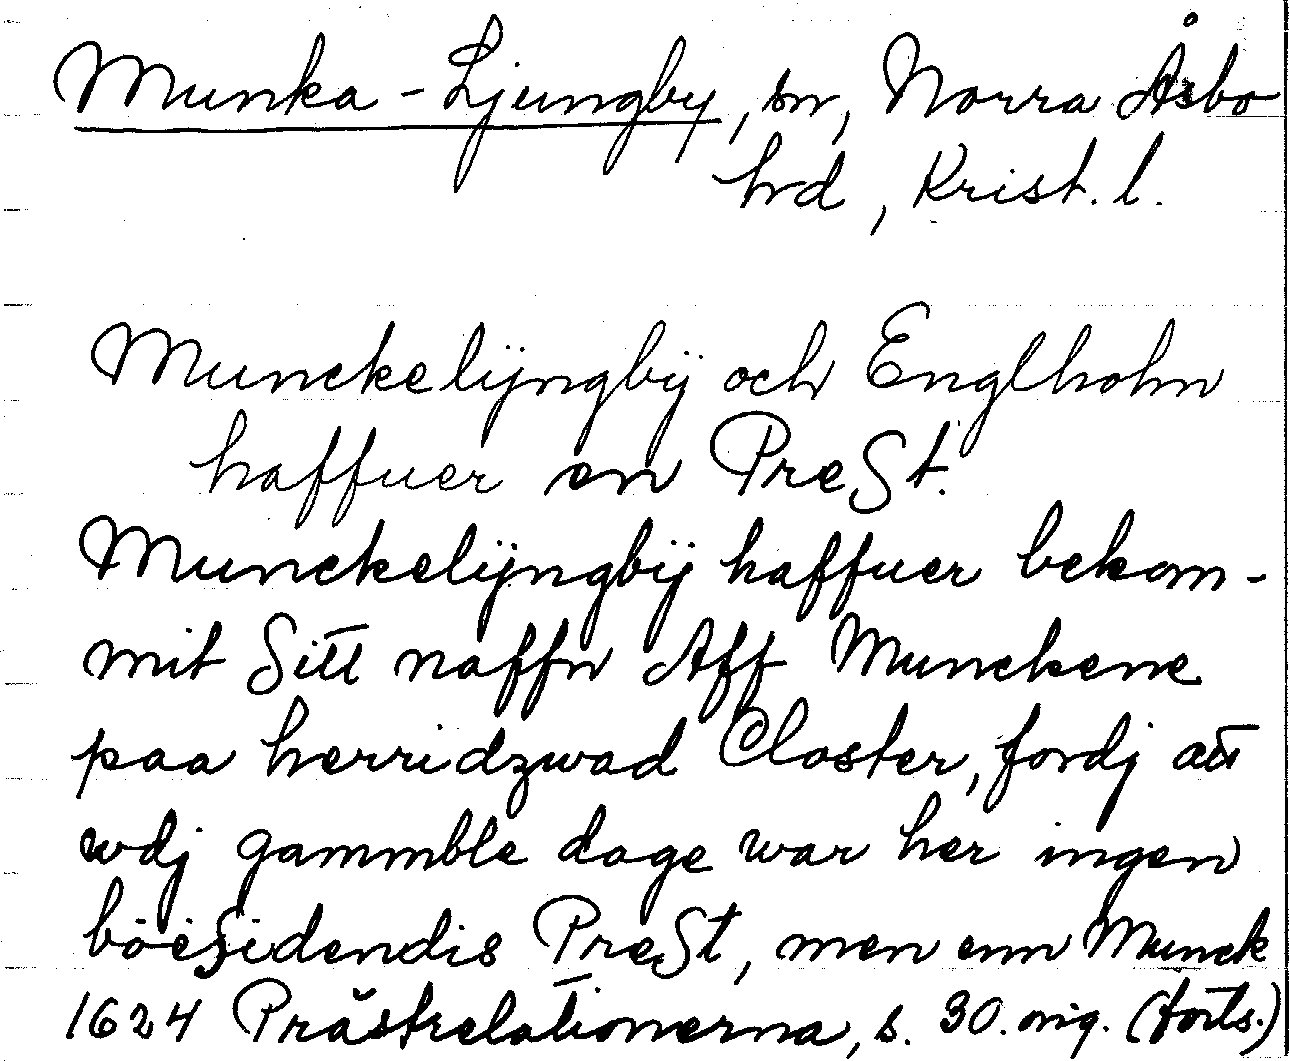 Munka-Ljungby, sn, Norra Åsbo
hd, Krist. l.
Munckelÿngbÿ och Englholm
haffuer en PreSt.
Munckelÿngbÿ haffuer bekom-
mit Sitt naffn Aff Munckene
paa herridzwad Closter, fordj att
wdj gammble dage war her ingen
böesidendis PreSt, men enn Munck
1624 Prästrelationerna, s. 30. orig. (forts.)